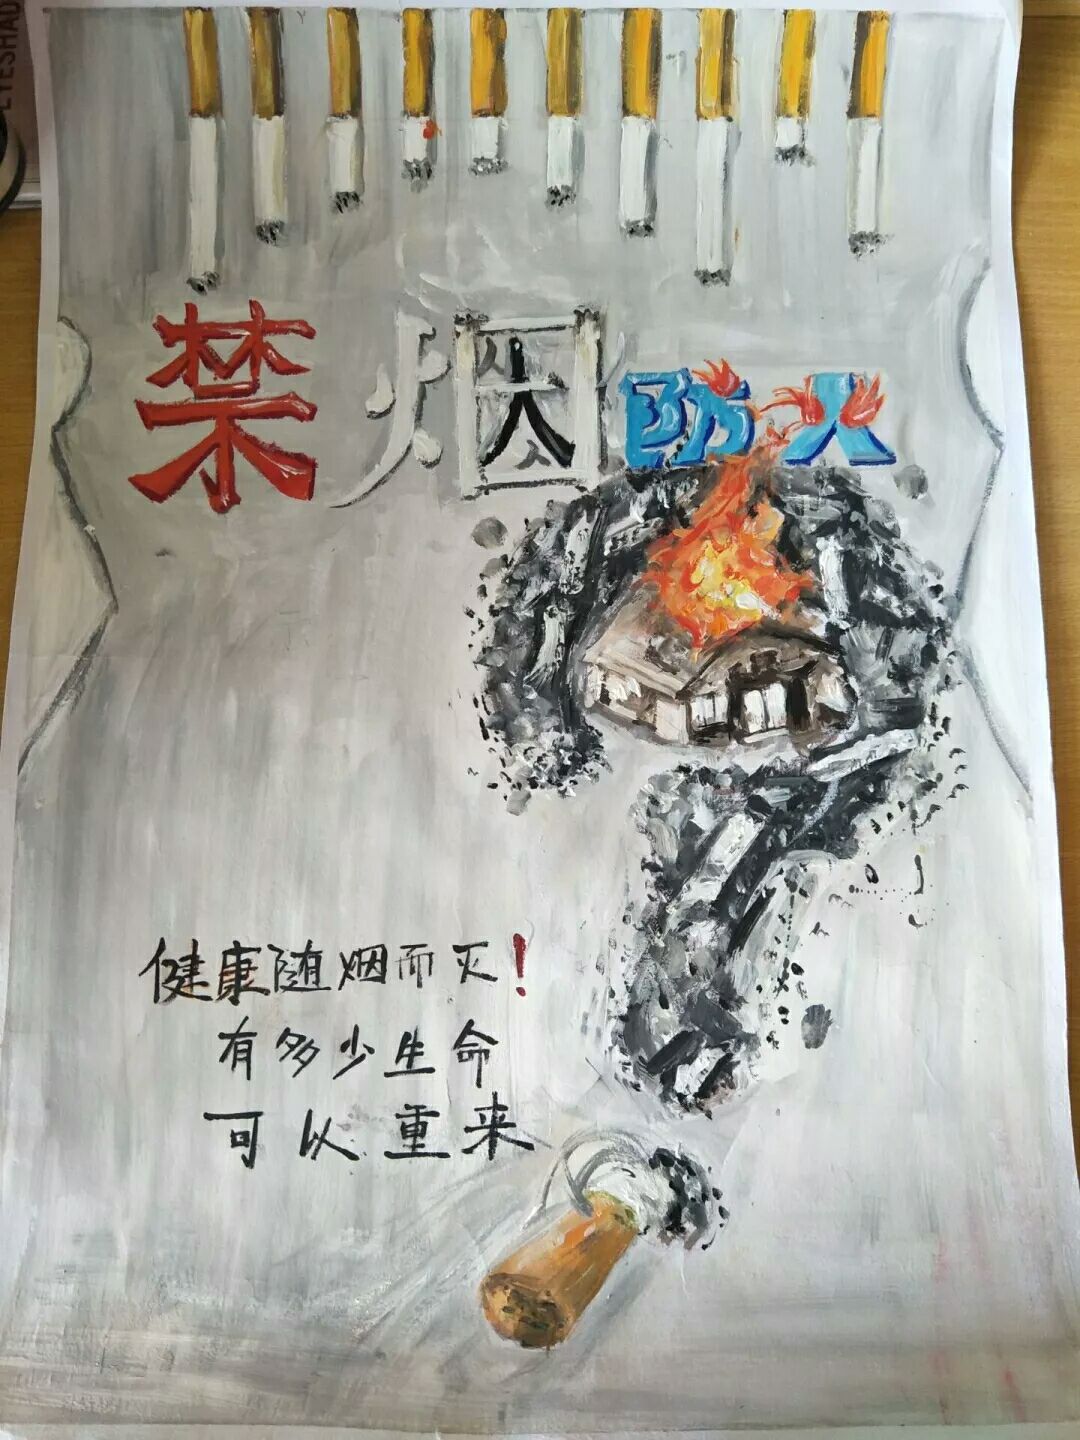 EYESHAD
禁烟防火
健康随烟而灭!
有多少生命
可以重来